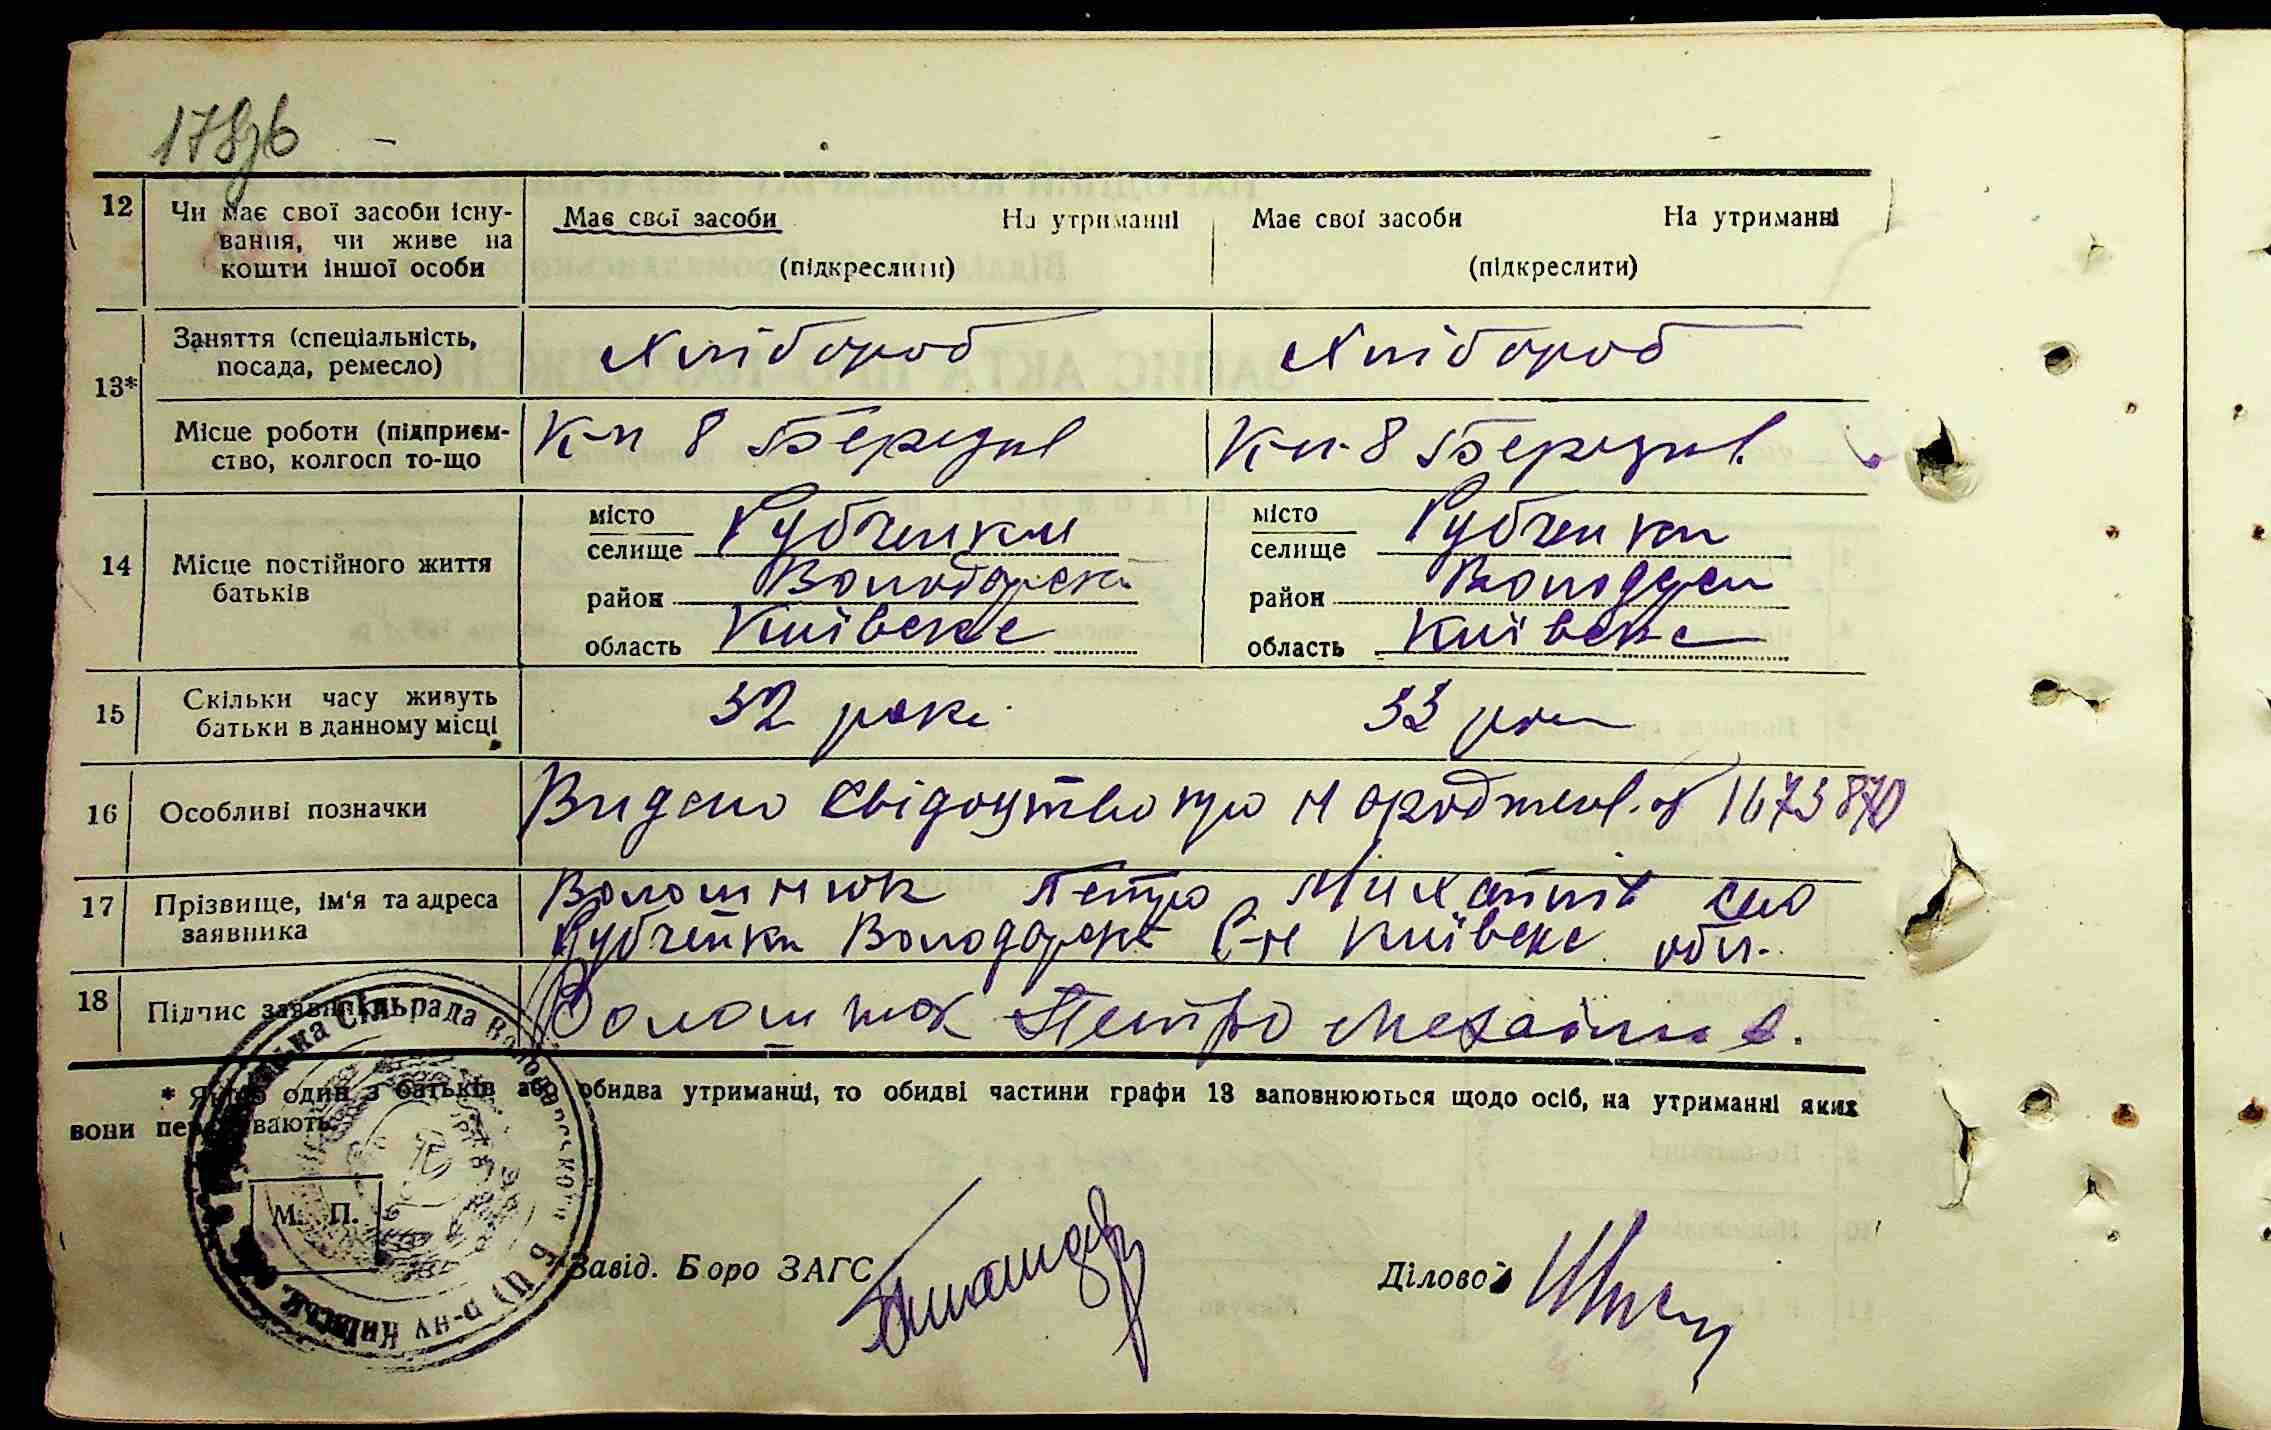 178зв
12 Чи має свої засоби існу- Має свої засоби На утриманні Має свої засоби На утриманні
вання, чи живе на
кошти іншої особи (підкреслити) (підкреслити)
13* Заняття (спеціальність, Хлібороб Хлібороб
посада, ремесло)
Місце роботи (підприєм- К-п 8 Березня К-п. 8 Березня
ство, колгосп то-що
14 Місце постійного життя місто Рубченки місто Рубченки
батьків селище селище
район Володарськ район Володарськ
область Київське область Київське
15 Скільки часу живуть 32 роки 33 роки
батьки в данному місці
16 Особливі позначки Видано свідоцтво про народжен. № 1673870
17 Прізвище, ім'я та адреса Волошинюк Петро Михайлів село
заявника Рубченки Володарськ р-н Київське обл.
18 Підпис заявника Волошинюк Петро Михайлів.
* Якщо один з батьків або обидва утриманці, то обидві частини графи 13 заповнюються щодо осіб, на утриманні яких
вони перебувають.
М. П.
Сільрада Володарського
р-ну Київськ.
Завід. Бюро ЗАГС Діловод